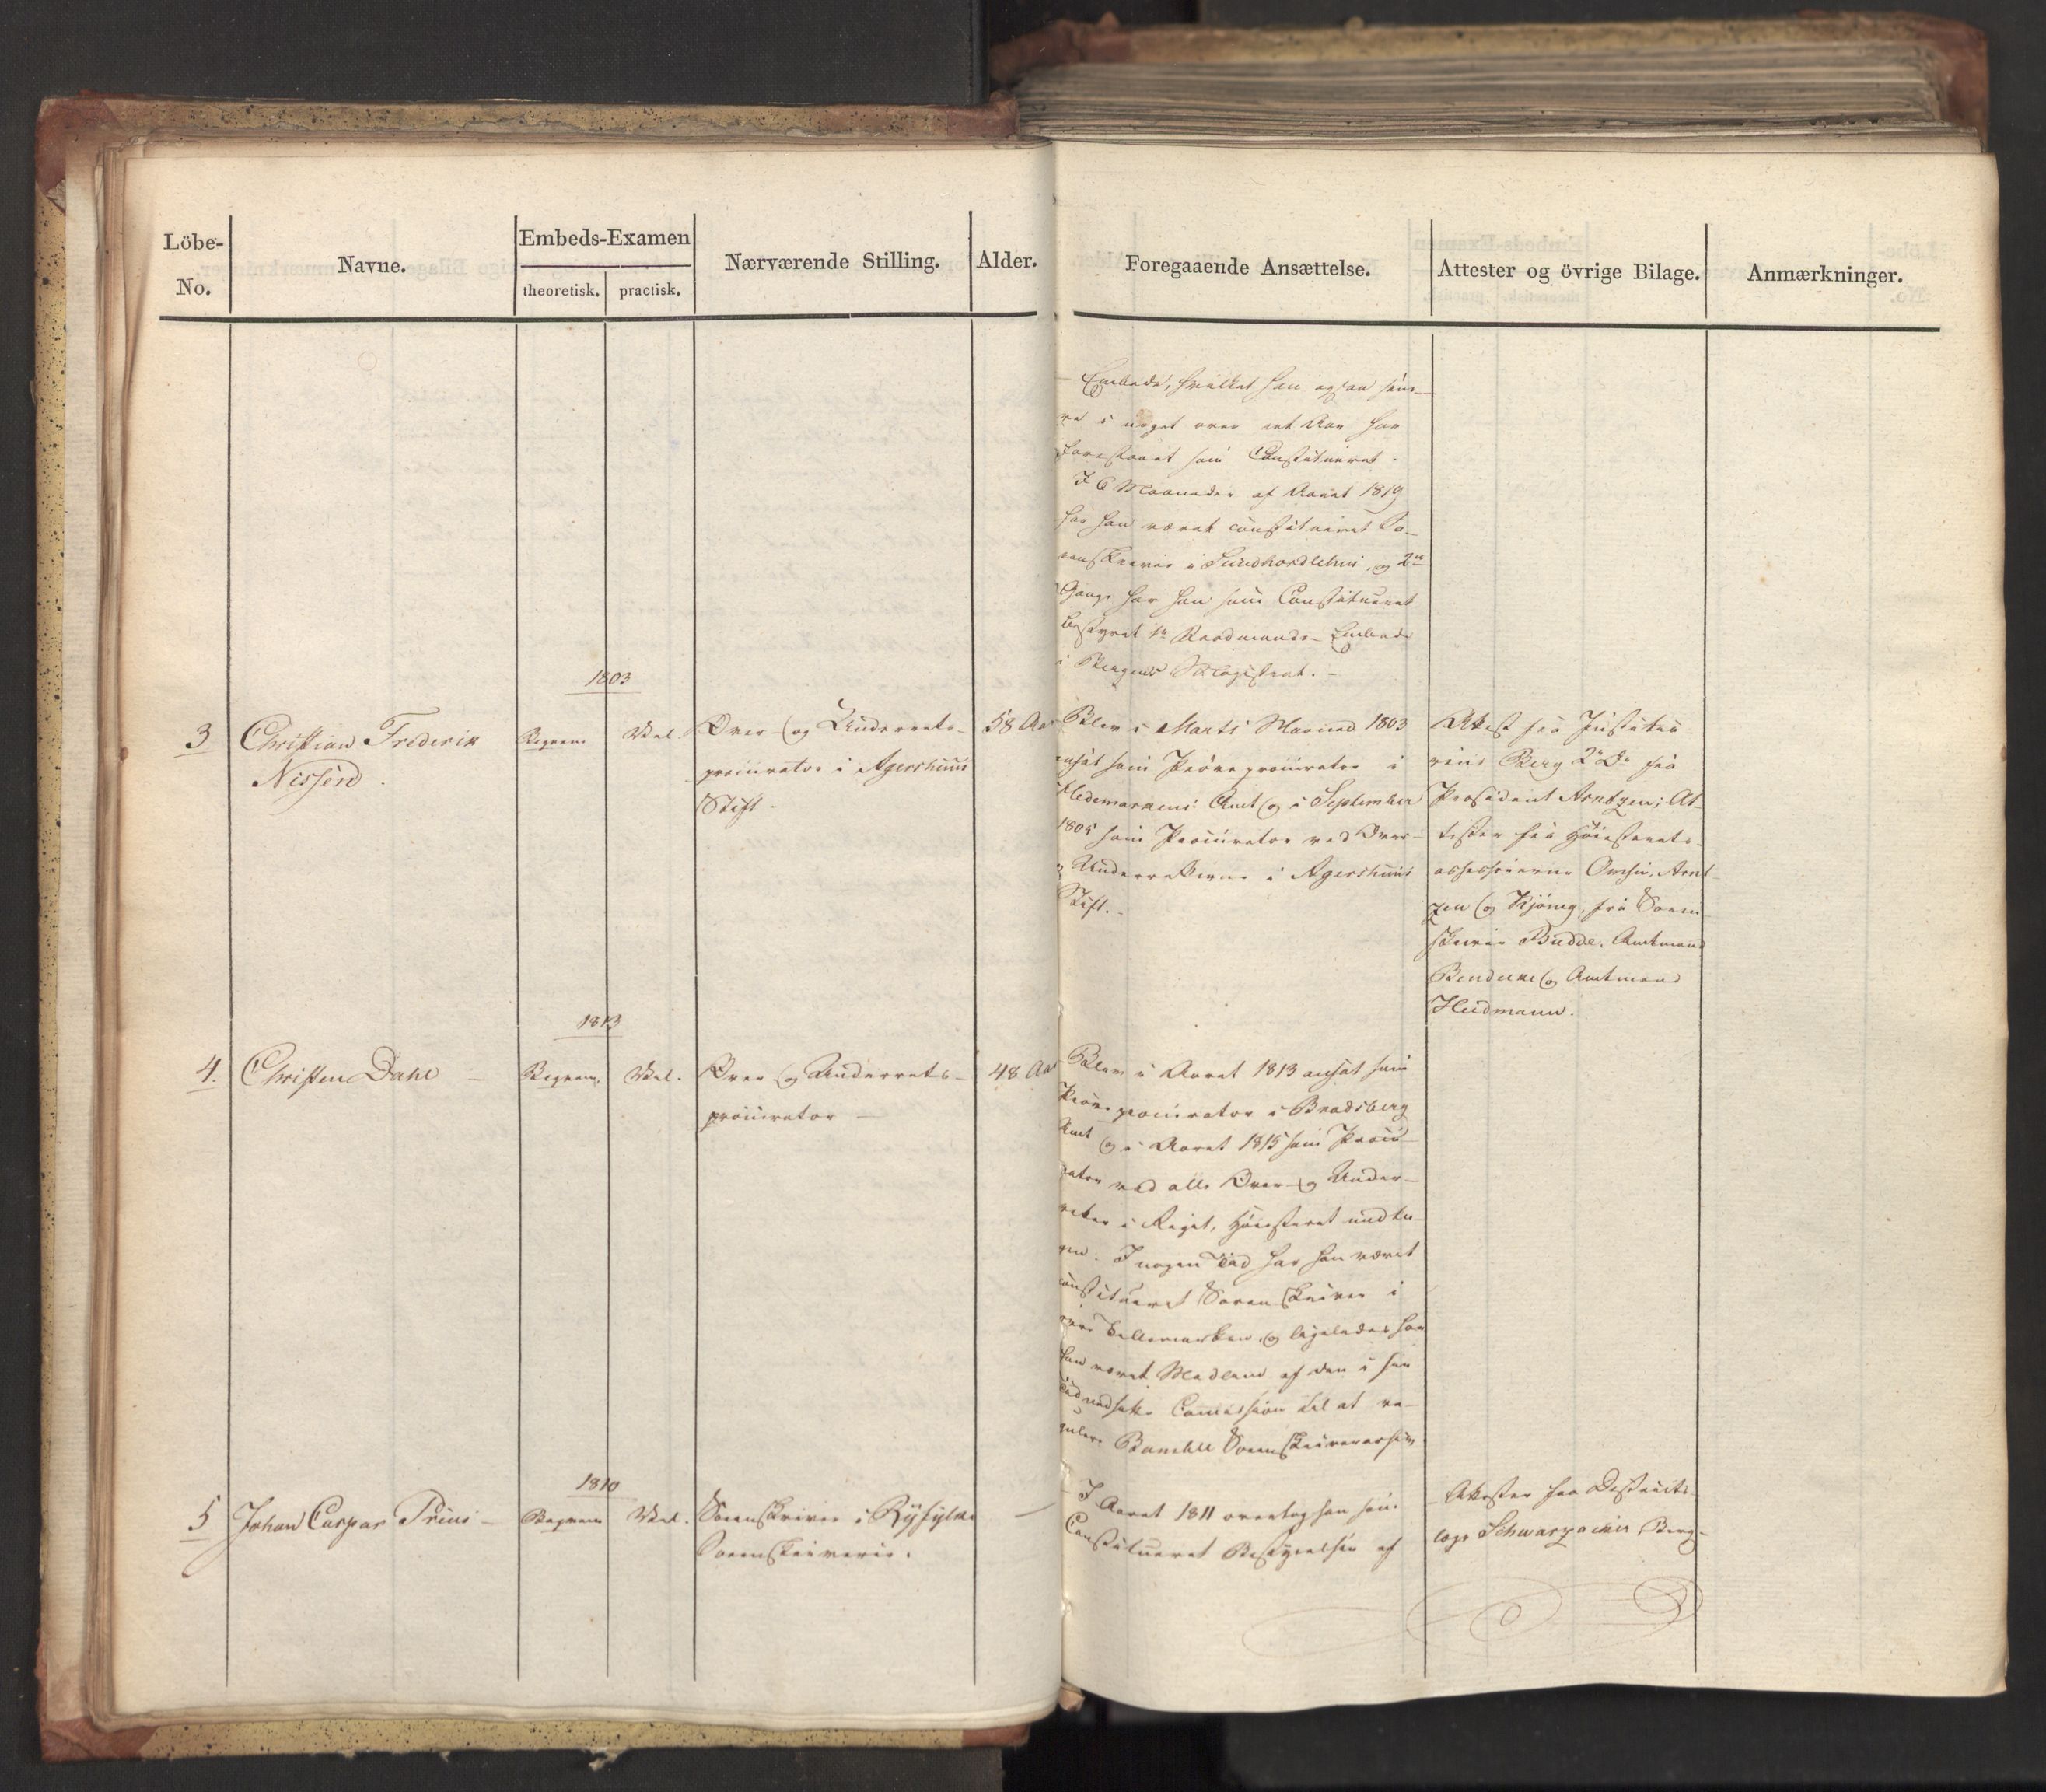 Löbe-
No.
Navne.
Embeds-Examen
theoretisk.
practisk.
Nærværende Stilling.
Alder.
Foregaaende Ansættelse.
Attester og övrige Bilage.
Anmærkninger.
Embede, hvilket han ogsaa sene-
re i noget over eet Aar har
forestaaet som Constitueret.
I 6 Maaneder af Aaret 1819
har han været constitueret So-
renskriver i Sundhordlehn, og 2de
Gange har han som Constitueret
bestyret 1ste Raadmands-Embede
i Bergens Magistrat. -
1803
3
Christian Frederik
Nissen.
Beqvem
Vel.
Over- og Underrets-
procurator i Agershuus
Stift.
58 Aar
Blev i Marts Maaned 1803
ansat som Pröveprocurator i
Hedemarkens Amt og i September
1805 som Procurator ved Over-
og Underretterne i Agershuus
Stift. -
Attest fra Justitia-
rius Berg 2de Do fra
Præsident Arntzen; At-
tester fra Höiesterets-
assessorerne Omsen, Arnt-
zen og Kjönig, fra Soren-
skriver Budde, Amtmand
Bendeke og Amtmand
Heidmann.
1813
4.
Christen Dahl -
Beqvem.
Vel.
Over- og Underrets-
procurator -
48 Aar
Blev i Aaret 1813 ansat som
Pröveprocurator i Bradsberg
Amt og i Aaret 1815 som Procu-
rator ved alle Over- og Under-
retter i Riget, Höiesteret undta-
gen. I nogen Tid har han været
constitueret Sorenskriver i
övre Tellemarken, og ligeledes har
han været Medlem af den i sin
Tid nedsatte Commission til at re-
gulere Bamble Sorenskriveries
1810
5
Johan Caspar Preus -
Beqvem
Vel.
Sorenskriver i Ryfylke
Sorenskriverie.
-
I Aaret 1811 overtog han som
Constitueret Bestyrelsen af
Attester fra Districts-
læge Schwarzacher, Berg-